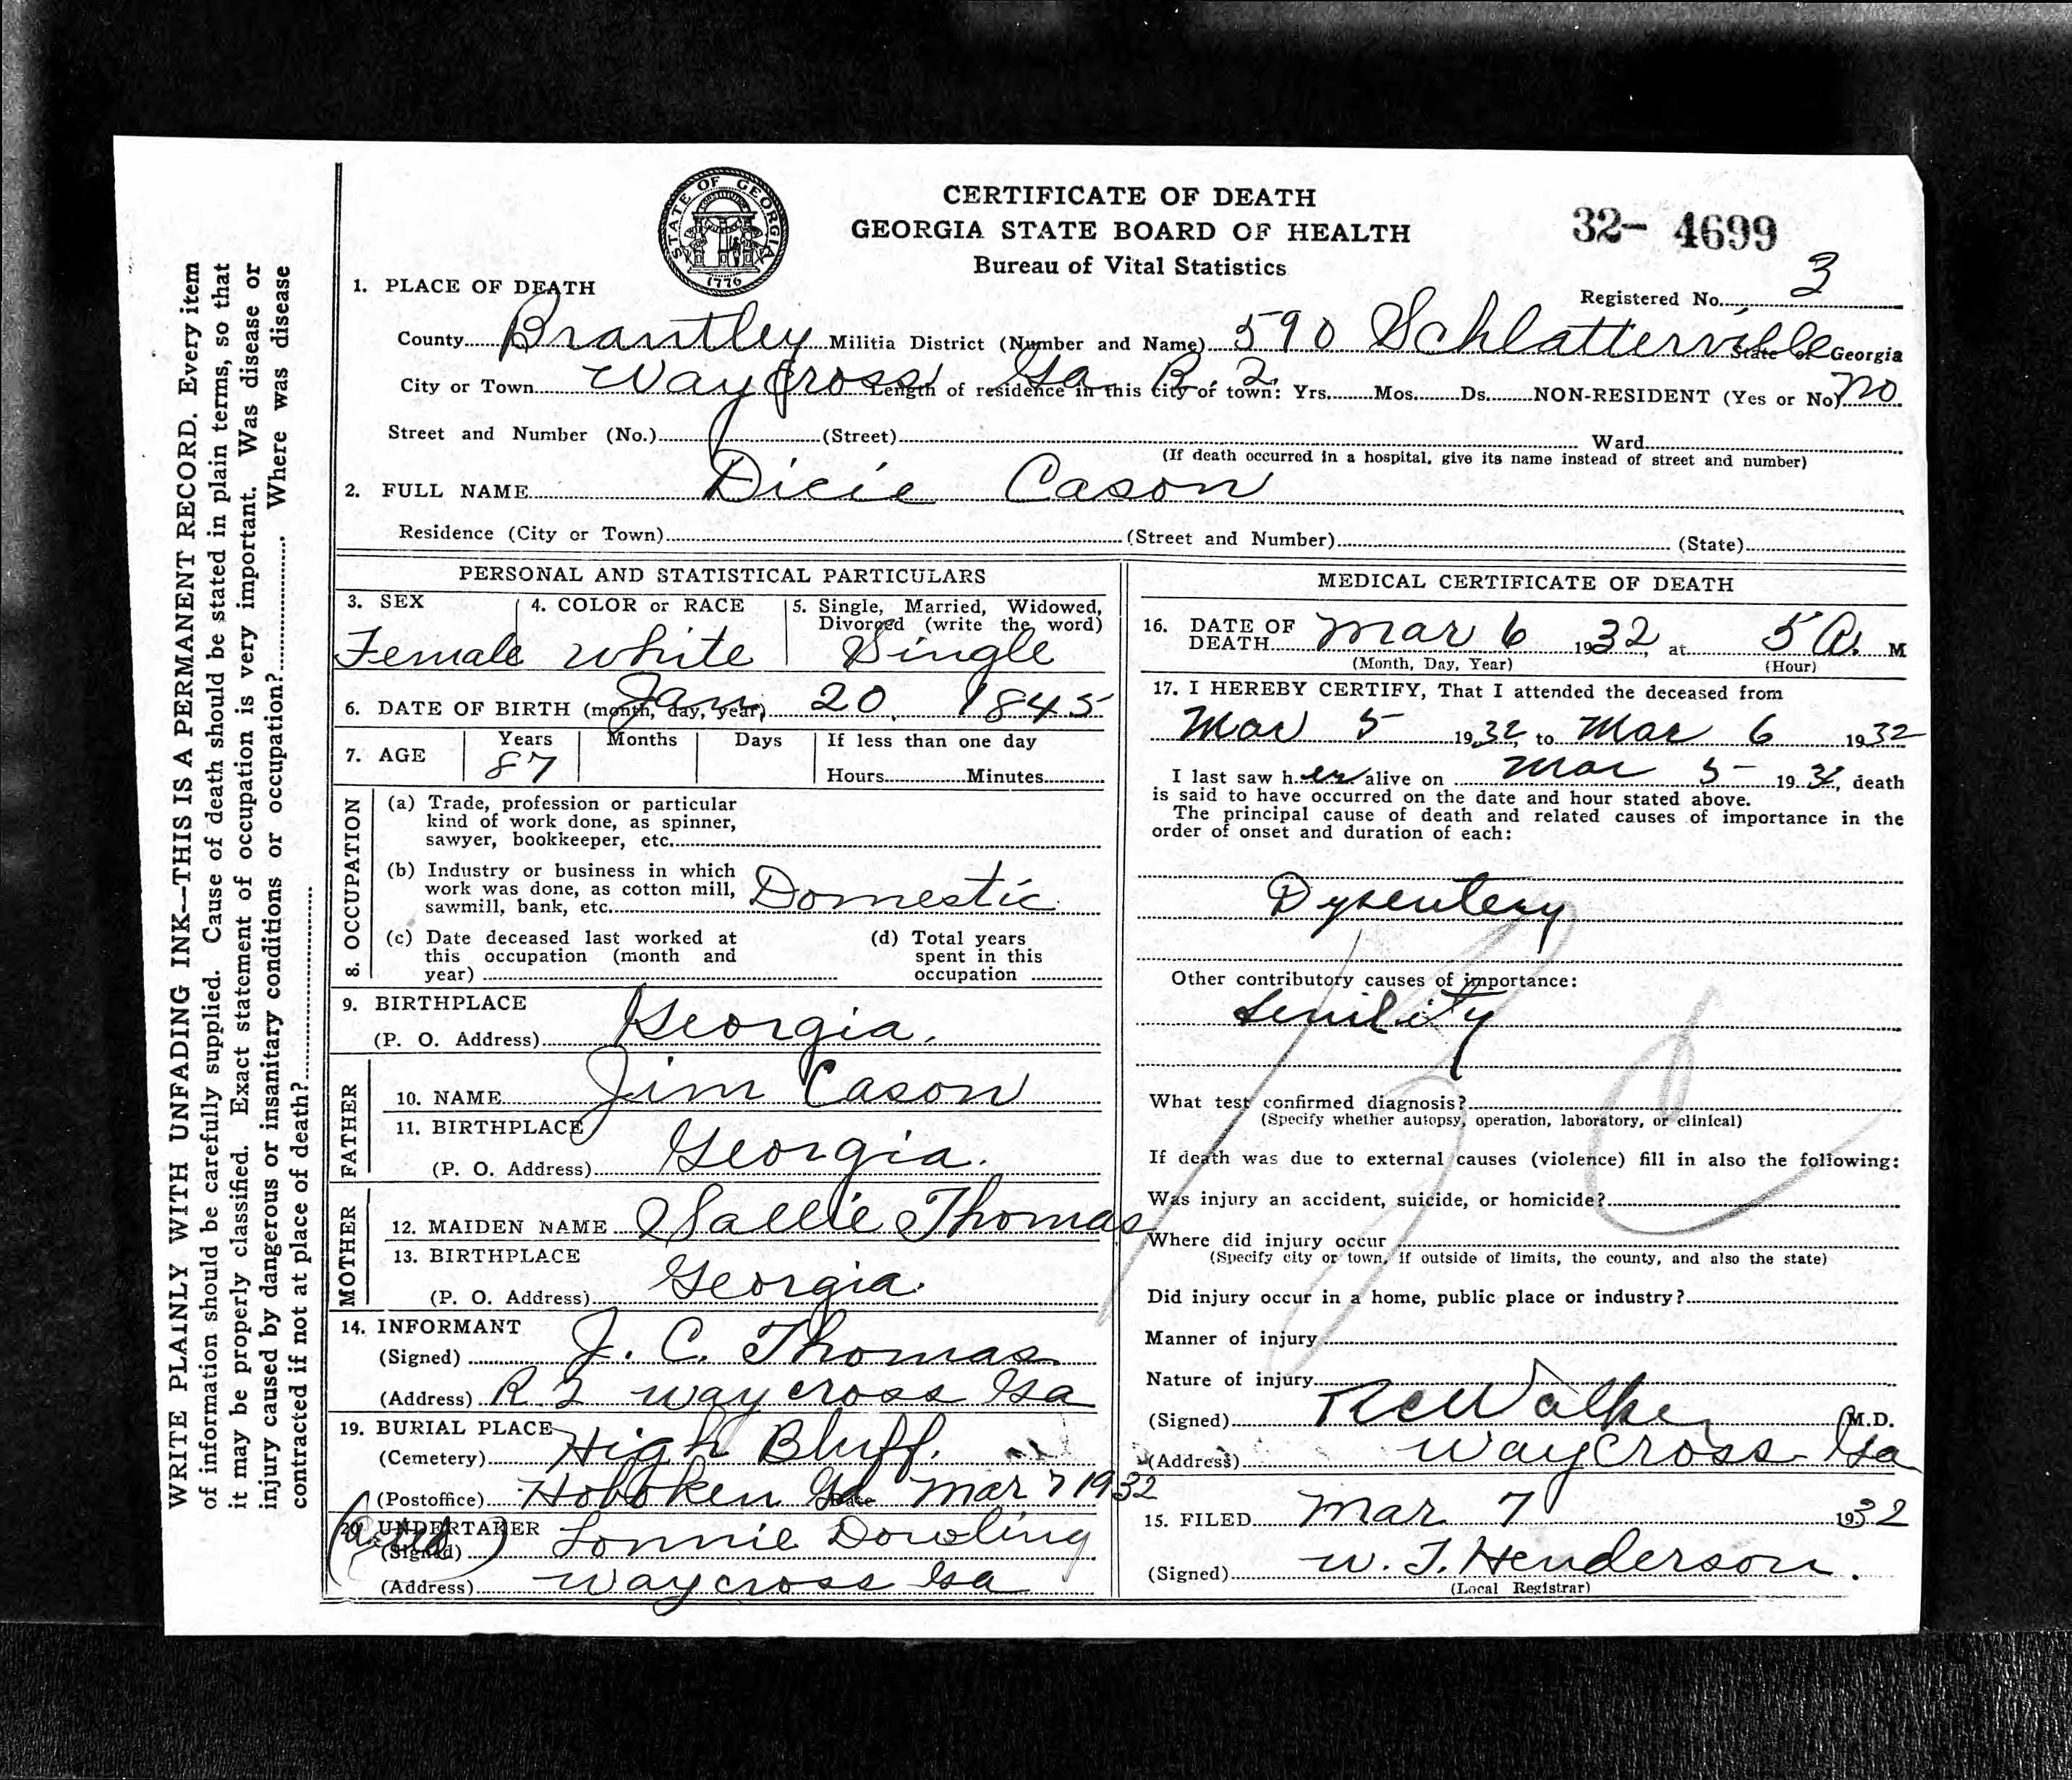 WRITE PLAINLY WITH UNFADING INK—THIS IS A PERMANENT RECORD. Every item
of information should be carefully supplied. Cause of death should be stated in plain terms, so that
it may be properly classified. Exact statement of occupation is very important. Was disease or
injury caused by dangerous or insanitary conditions or occupation?.......... Where was disease
contracted if not at place of death?..........
STATE OF GEORGIA
CONSTITUTION
1776
CERTIFICATE OF DEATH
GEORGIA STATE BOARD OF HEALTH
Bureau of Vital Statistics
32- 4699
Registered No. 3
1. PLACE OF DEATH
County Brantley Militia District (Number and Name) 590 Schlatterville State of Georgia
City or Town Waycross Ga R. 2 Length of residence in this city or town: Yrs. Mos. Ds. NON-RESIDENT (Yes or No) No
Street and Number (No.) (Street) Ward
(If death occurred in a hospital, give its name instead of street and number)
2. FULL NAME Dicie Cason
Residence (City or Town) (Street and Number) (State)
PERSONAL AND STATISTICAL PARTICULARS
3. SEX 4. COLOR or RACE 5. Single, Married, Widowed,
Divorced (write the word)
Female White Single
6. DATE OF BIRTH (month, day, year) Jan 20, 1845
7. AGE Years Months Days If less than one day
87 Hours Minutes
8. OCCUPATION
(a) Trade, profession or particular
kind of work done, as spinner,
sawyer, bookkeeper, etc.
(b) Industry or business in which
work was done, as cotton mill,
sawmill, bank, etc. Domestic
(c) Date deceased last worked at
this occupation (month and
year)
(d) Total years
spent in this
occupation
9. BIRTHPLACE
(P. O. Address) Georgia.
FATHER
10. NAME Jim Cason
11. BIRTHPLACE
(P. O. Address) Georgia.
MOTHER
12. MAIDEN NAME Sallie Thomas
13. BIRTHPLACE
(P. O. Address) Georgia.
14. INFORMANT
(Signed) J. C. Thomas
(Address) R 2 Waycross Ga
19. BURIAL PLACE
(Cemetery) High Bluff.
(Postoffice) Hoboken Ga Date Mar 7 1932
20. UNDERTAKER
(Signed) Lonnie Dowling
(Address) Waycross Ga
MEDICAL CERTIFICATE OF DEATH
16. DATE OF
DEATH Mar 6 1932, at 5 A. M
(Month, Day, Year) (Hour)
17. I HEREBY CERTIFY, That I attended the deceased from
Mar 5 1932, to Mar 6 1932
I last saw her alive on Mar 5 1932, death
is said to have occurred on the date and hour stated above.
The principal cause of death and related causes of importance in the
order of onset and duration of each:
Dysentery
Other contributory causes of importance:
Senility
What test confirmed diagnosis?
(Specify whether autopsy, operation, laboratory, or clinical)
If death was due to external causes (violence) fill in also the following:
Was injury an accident, suicide, or homicide?
Where did injury occur
(Specify city or town, if outside of limits, the county, and also the state)
Did injury occur in a home, public place or industry?
Manner of injury
Nature of injury
(Signed) RC Walker M.D.
(Address) Waycross Ga
15. FILED Mar 7 1932
(Signed) W. T. Henderson.
(Local Registrar)